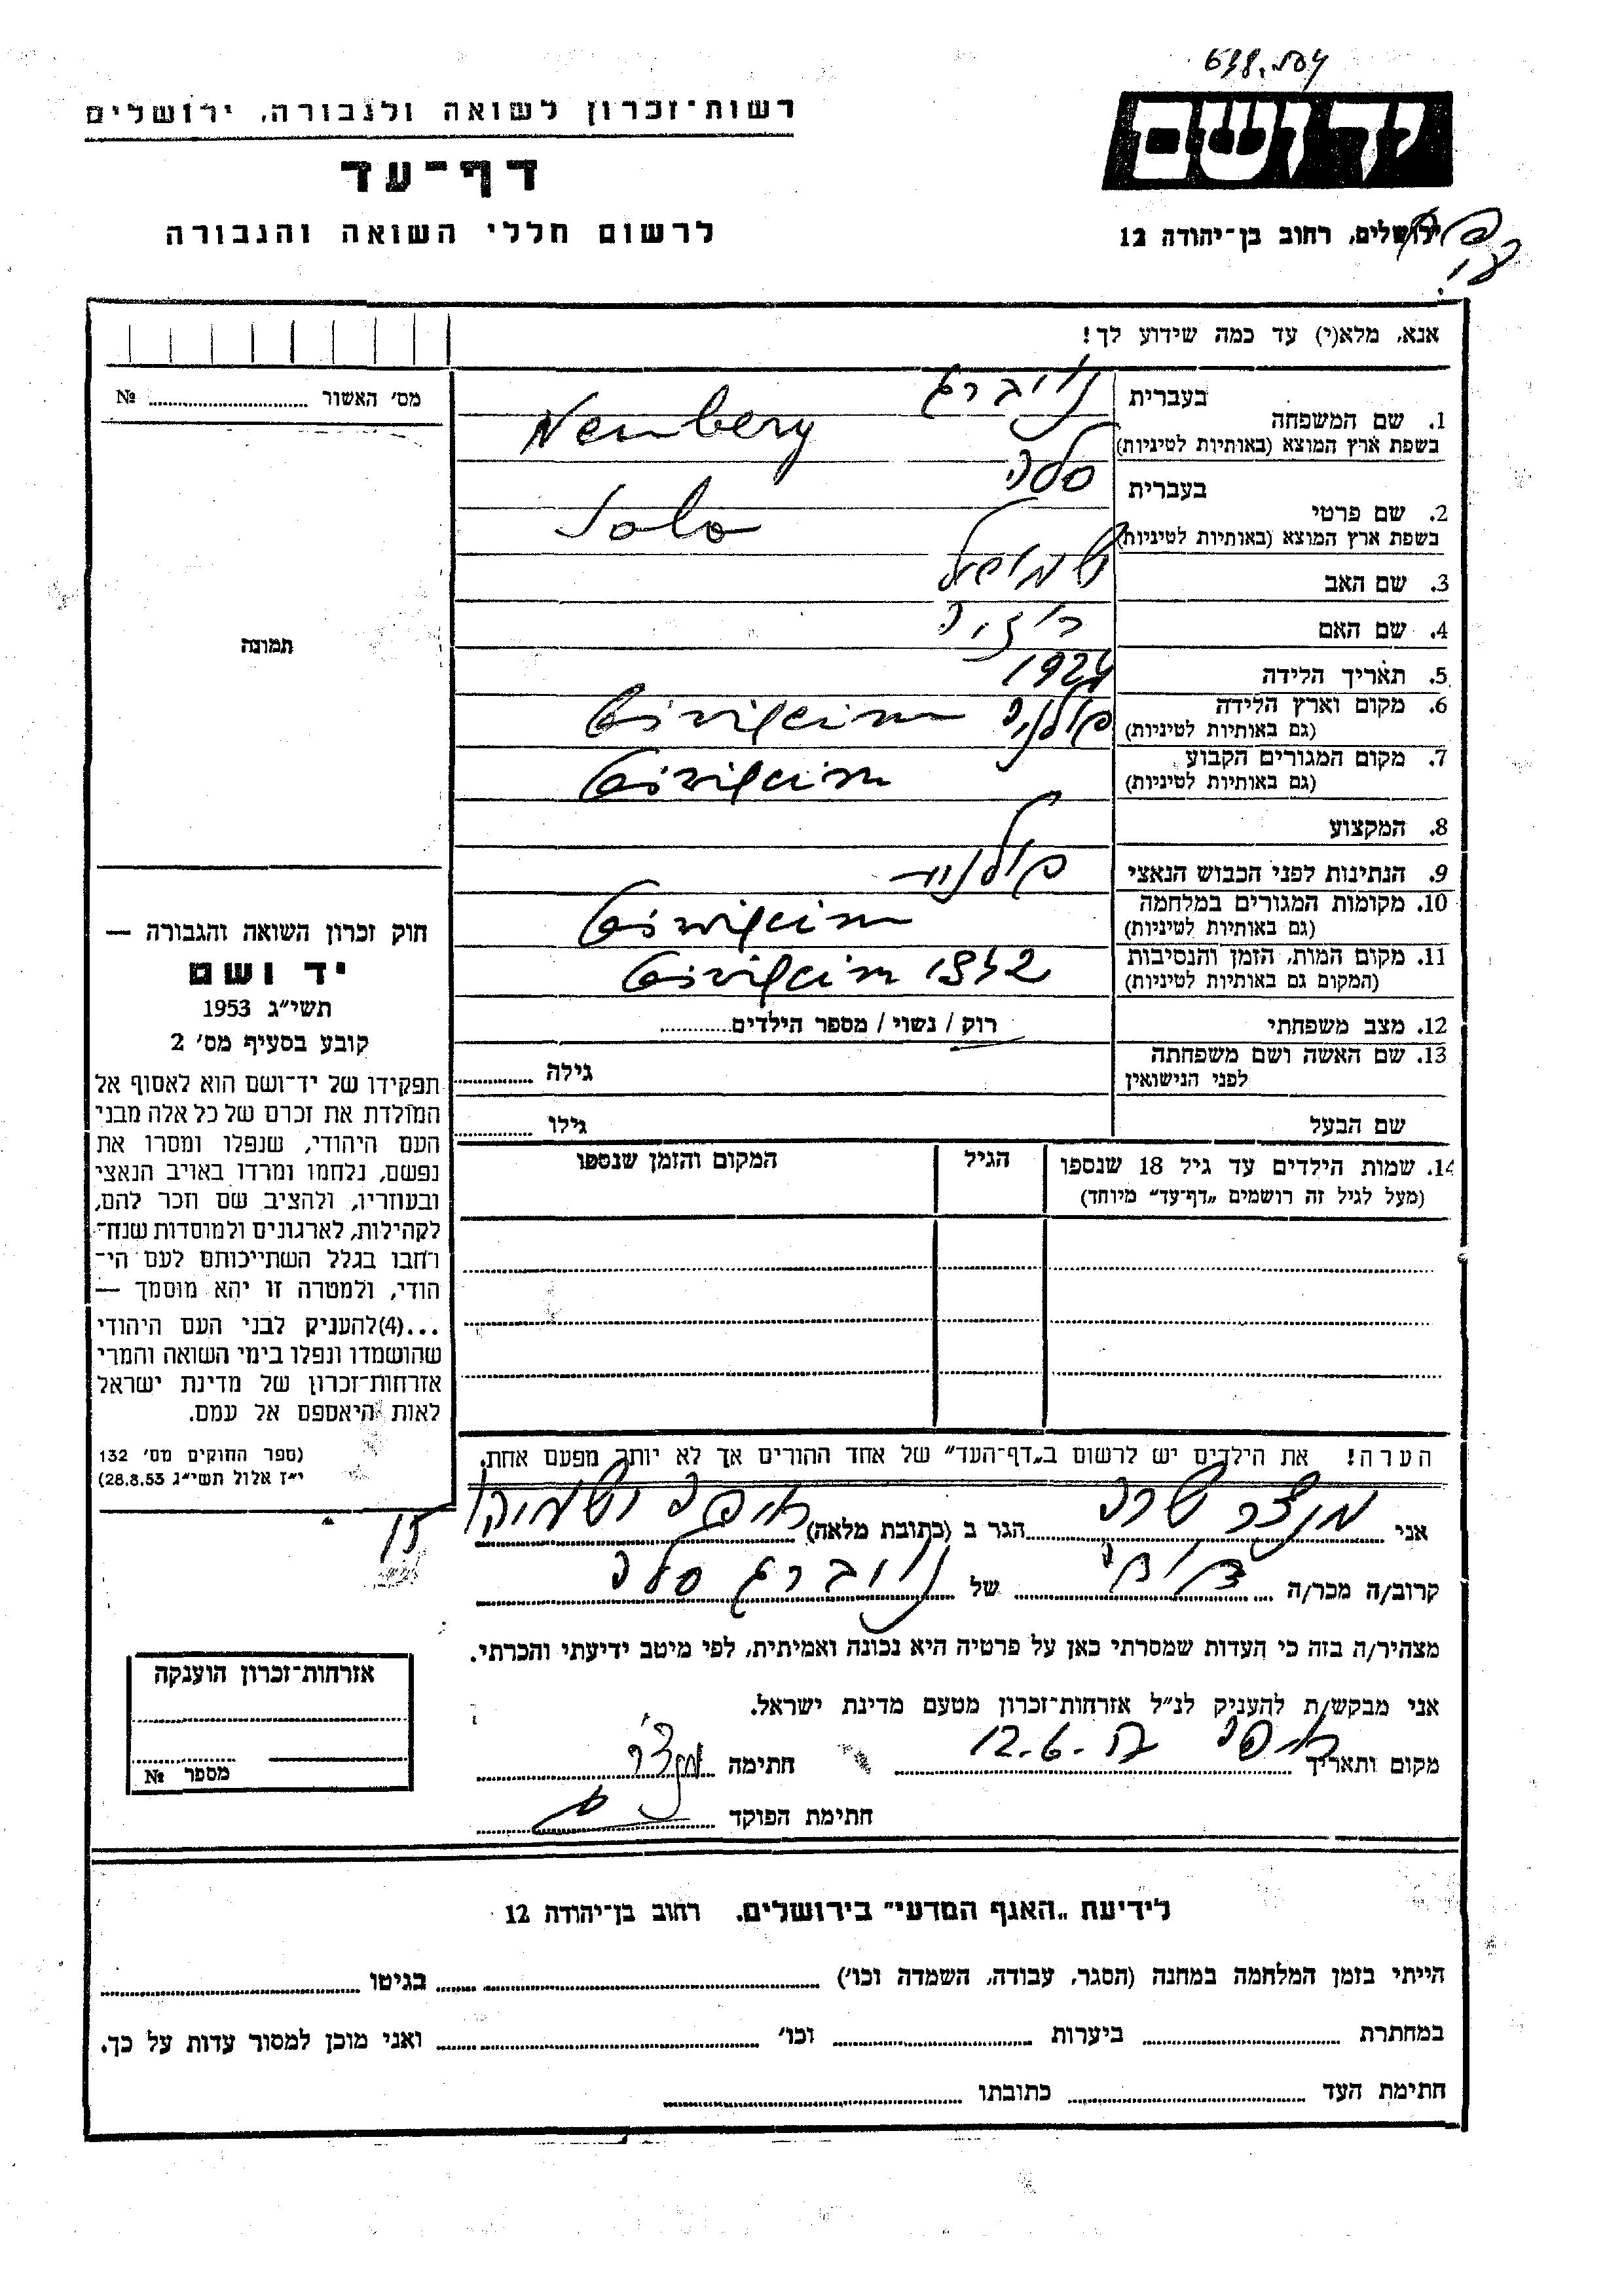 638.504
רשות-זכרון לשואה ולגבורה, ירושלים
יד ושם
דף-עד
לרשום חללי השואה והגבורה
ירושלים, רחוב בן-יהודה 12
אנא, מלא(י) עד כמה שידוע לך!
מס׳ האשור № ...
1. שם המשפחה בעברית נויברג
בשפת ארץ המוצא (באותיות לטיניות) Neuberg
2. שם פרטי בעברית סלה
בשפת ארץ המוצא (באותיות לטיניות) Sala
3. שם האב שמואל
4. שם האם רוזיה
5. תאריך הלידה 1924
6. מקום וארץ הלידה פולניה
(גם באותיות לטיניות)
7. מקום המגורים הקבוע
(גם באותיות לטיניות)
8. המקצוע
9. הנתינות לפני הכבוש הנאצי פולנית
10. מקומות המגורים במלחמה
(גם באותיות לטיניות)
11. מקום המות, הזמן והנסיבות 1942
(המקום גם באותיות לטיניות)
12. מצב משפחתי רוק / נשוי / מספר הילדים...
13. שם האשה ושם משפחתה
לפני הנישואין גילה ...
שם הבעל גילו ...
14. שמות הילדים עד גיל 18 שנספו הגיל המקום והזמן שנספו
(מעל לגיל זה רושמים „דף-עד״ מיוחד)
תמונה
חוק זכרון השואה והגבורה —
יד ושם
תשי״ג 1953
קובע בסעיף מס׳ 2
תפקידו של יד-ושם הוא לאסוף אל
המולדת את זכרם של כל אלה מבני
העם היהודי, שנפלו ומסרו את
נפשם, נלחמו ומרדו באויב הנאצי
ובעוזריו, ולהציב שם וזכר להם,
לקהילות, לארגונים ולמוסדות שנח-
רחבו בגלל השתייכותם לעם הי-
הודי, ולמטרה זו יהא מוסמך —
...(4)להעניק לבני העם היהודי
שהושמדו ונפלו בימי השואה והמרי
אזרחות-זכרון של מדינת ישראל
לאות היאספם אל עמם.
(ספר החוקים מס׳ 132
י״ז אלול תשי״ג 28.8.53)
הערה! את הילדים יש לרשום ב„דף-העד״ של אחד ההורים אך לא יותר מפעם אחת.
אני מנצר שרה הגר ב (כתובת מלאה) חיפה
קרוב/ה מכר/ה של נויברג סלה
מצהיר/ה בזה כי העדות שמסרתי כאן על פרטיה היא נכונה ואמיתית, לפי מיטב ידיעתי והכרתי.
אני מבקש/ת להעניק לנ״ל אזרחות-זכרון מטעם מדינת ישראל.
מקום ותאריך חיפה חתימה
חתימת הפוקד
אזרחות-זכרון הוענקה
מספר №
לידיעת „האגף המדעי״ בירושלים, רחוב בן-יהודה 12
הייתי בזמן המלחמה במחנה (הסגר, עבודה, השמדה וכו׳) ... בגיטו ...
במחתרת ... ביערות ... וכו׳ ... ואני מוכן למסור עדות על כך.
חתימת העד ... כתובתו ...